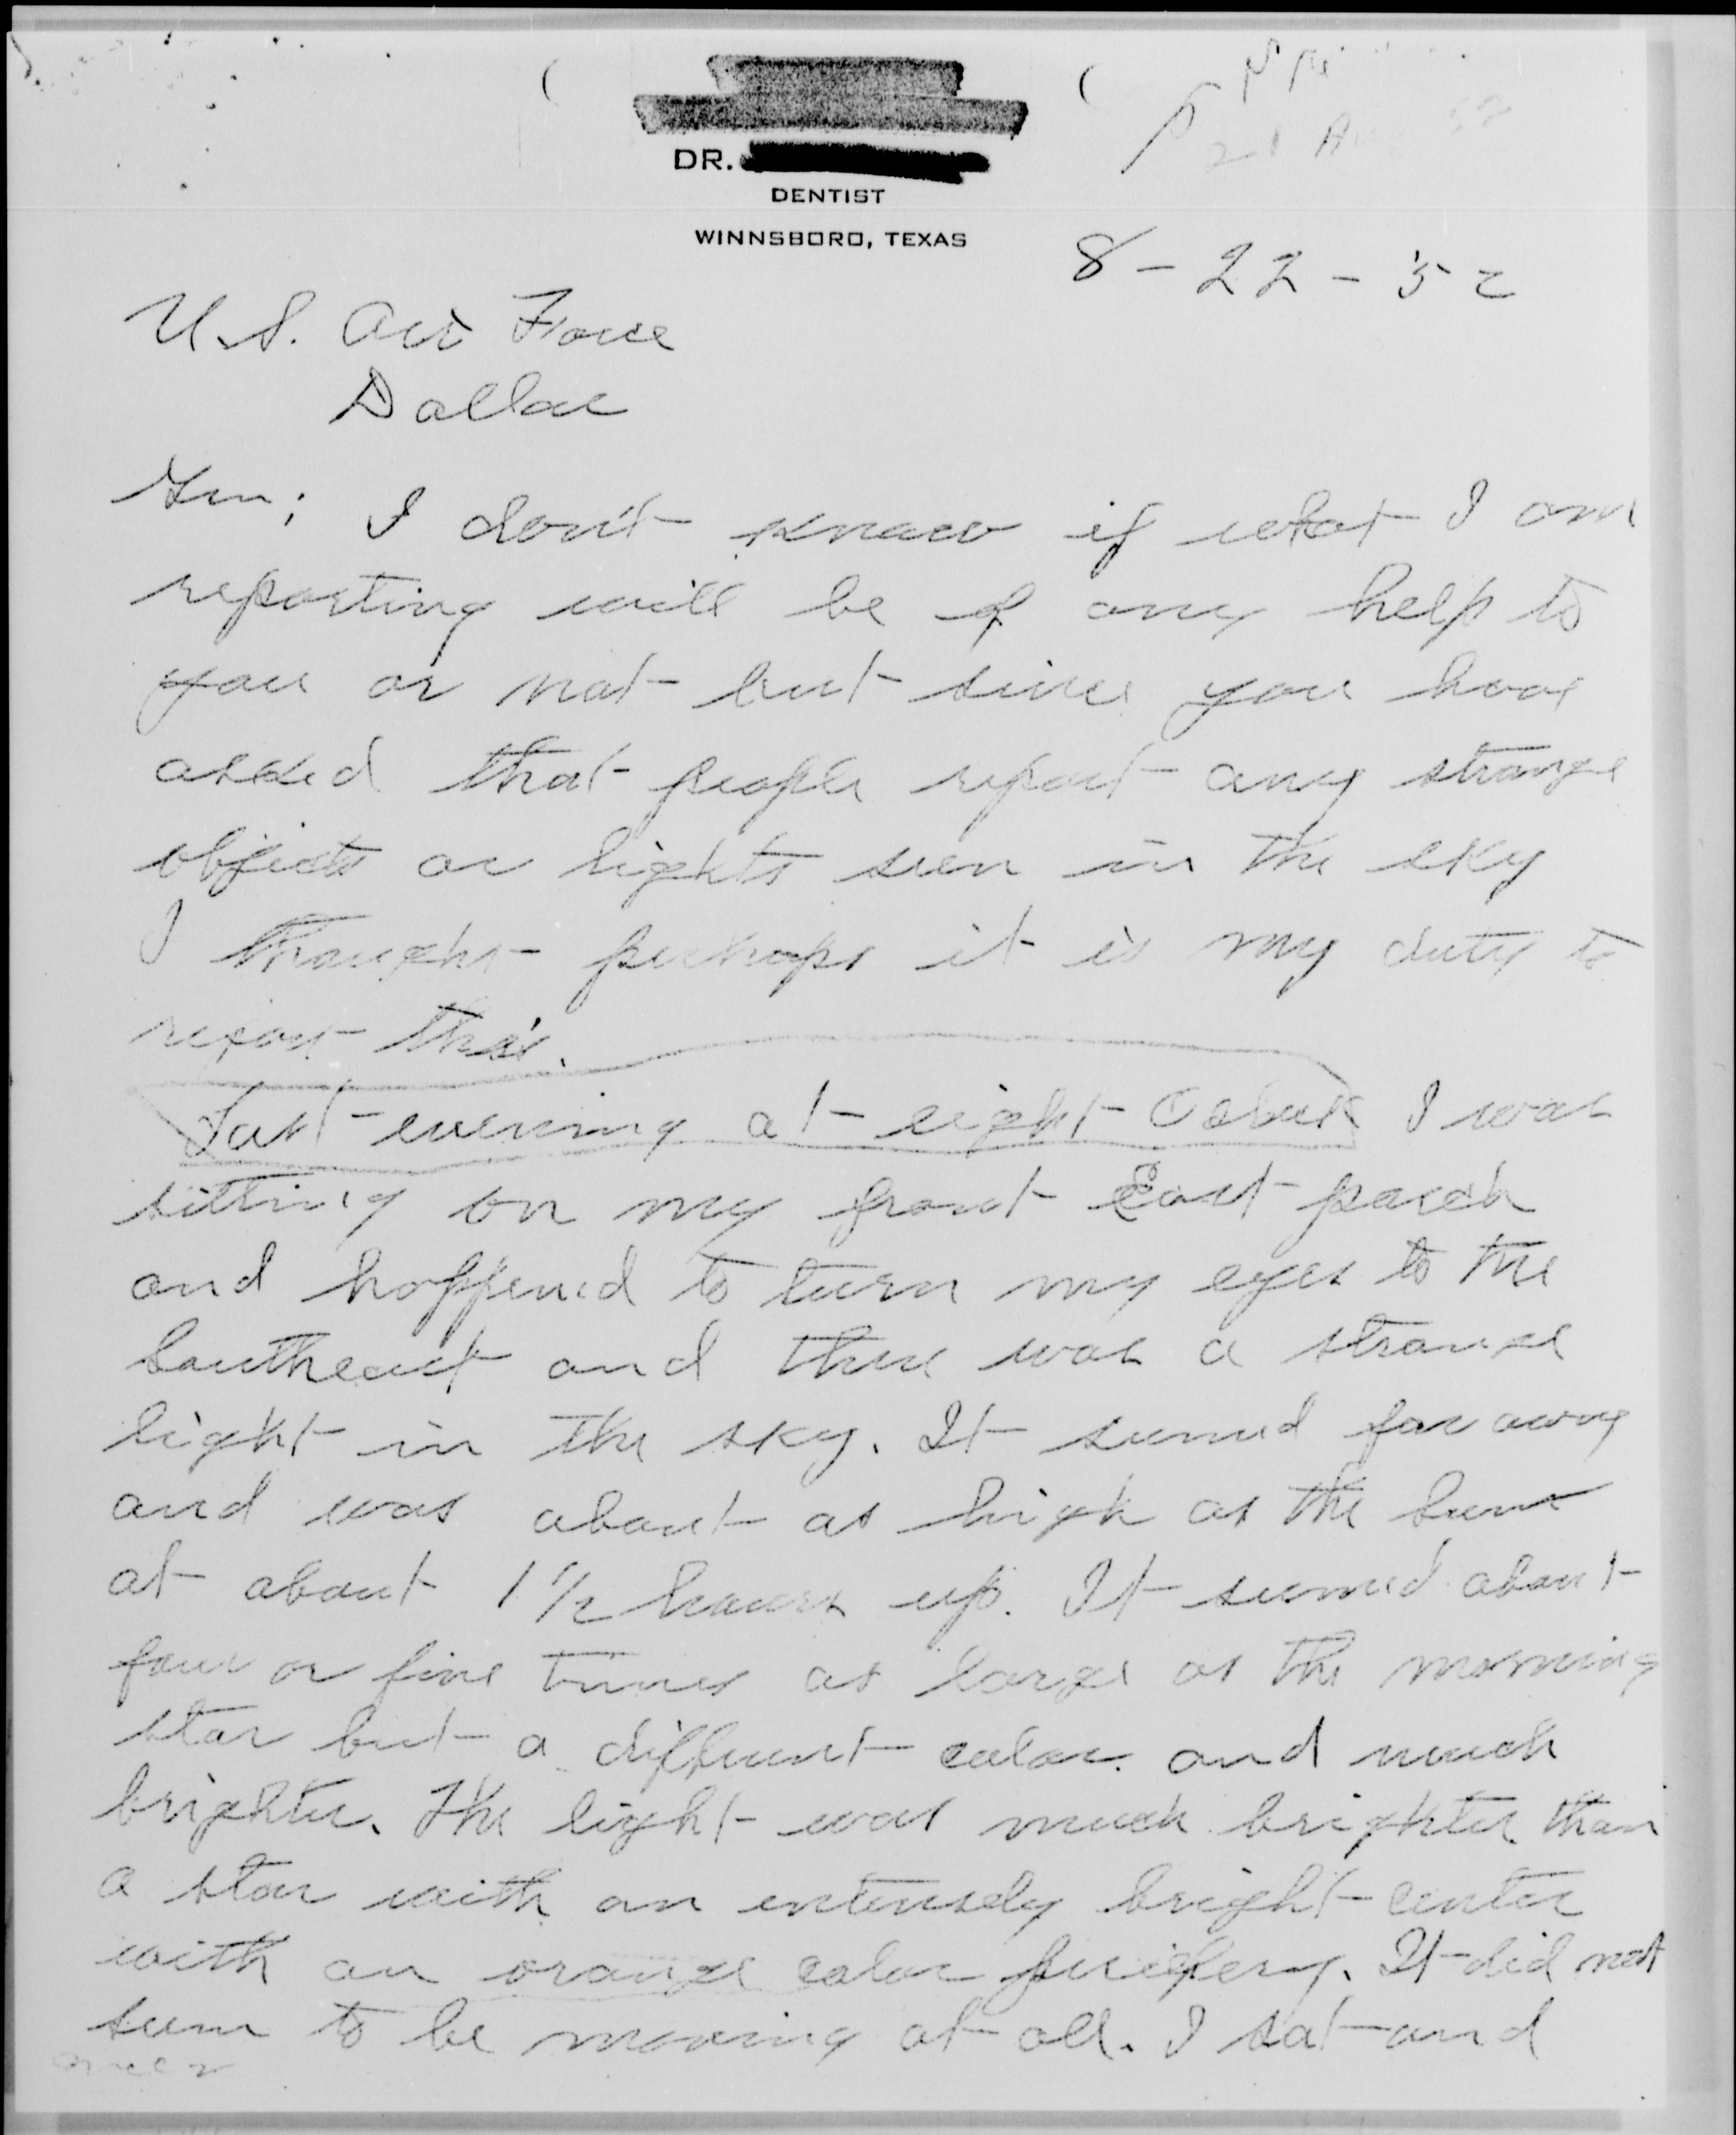 DR.
DENTIST
WINNSBORO, TEXAS
21 Au 52
8-22-52
U.S. Air Force
Dallas
Gen; I don't know if what I am
reporting will be of any help to
you or not but since you have
asked that people report any strange
objects or lights seen in the sky
I thought perhaps it is my duty to
report this.
Last evening at eight Oclock I was
sitting on my front East porch
and happened to turn my eyes to the
Southeast and there was a strange
light in the sky. It seemed far away
and was about as high as the sun
at about 1 1/2 hours up. It seemed about
four or five times as large as the morning
star but a different color and much
brighter. The light was much brighter than
a star with an intensely bright center
with an orange color perifery. It did not
seem to be moving at all. I sat and
over